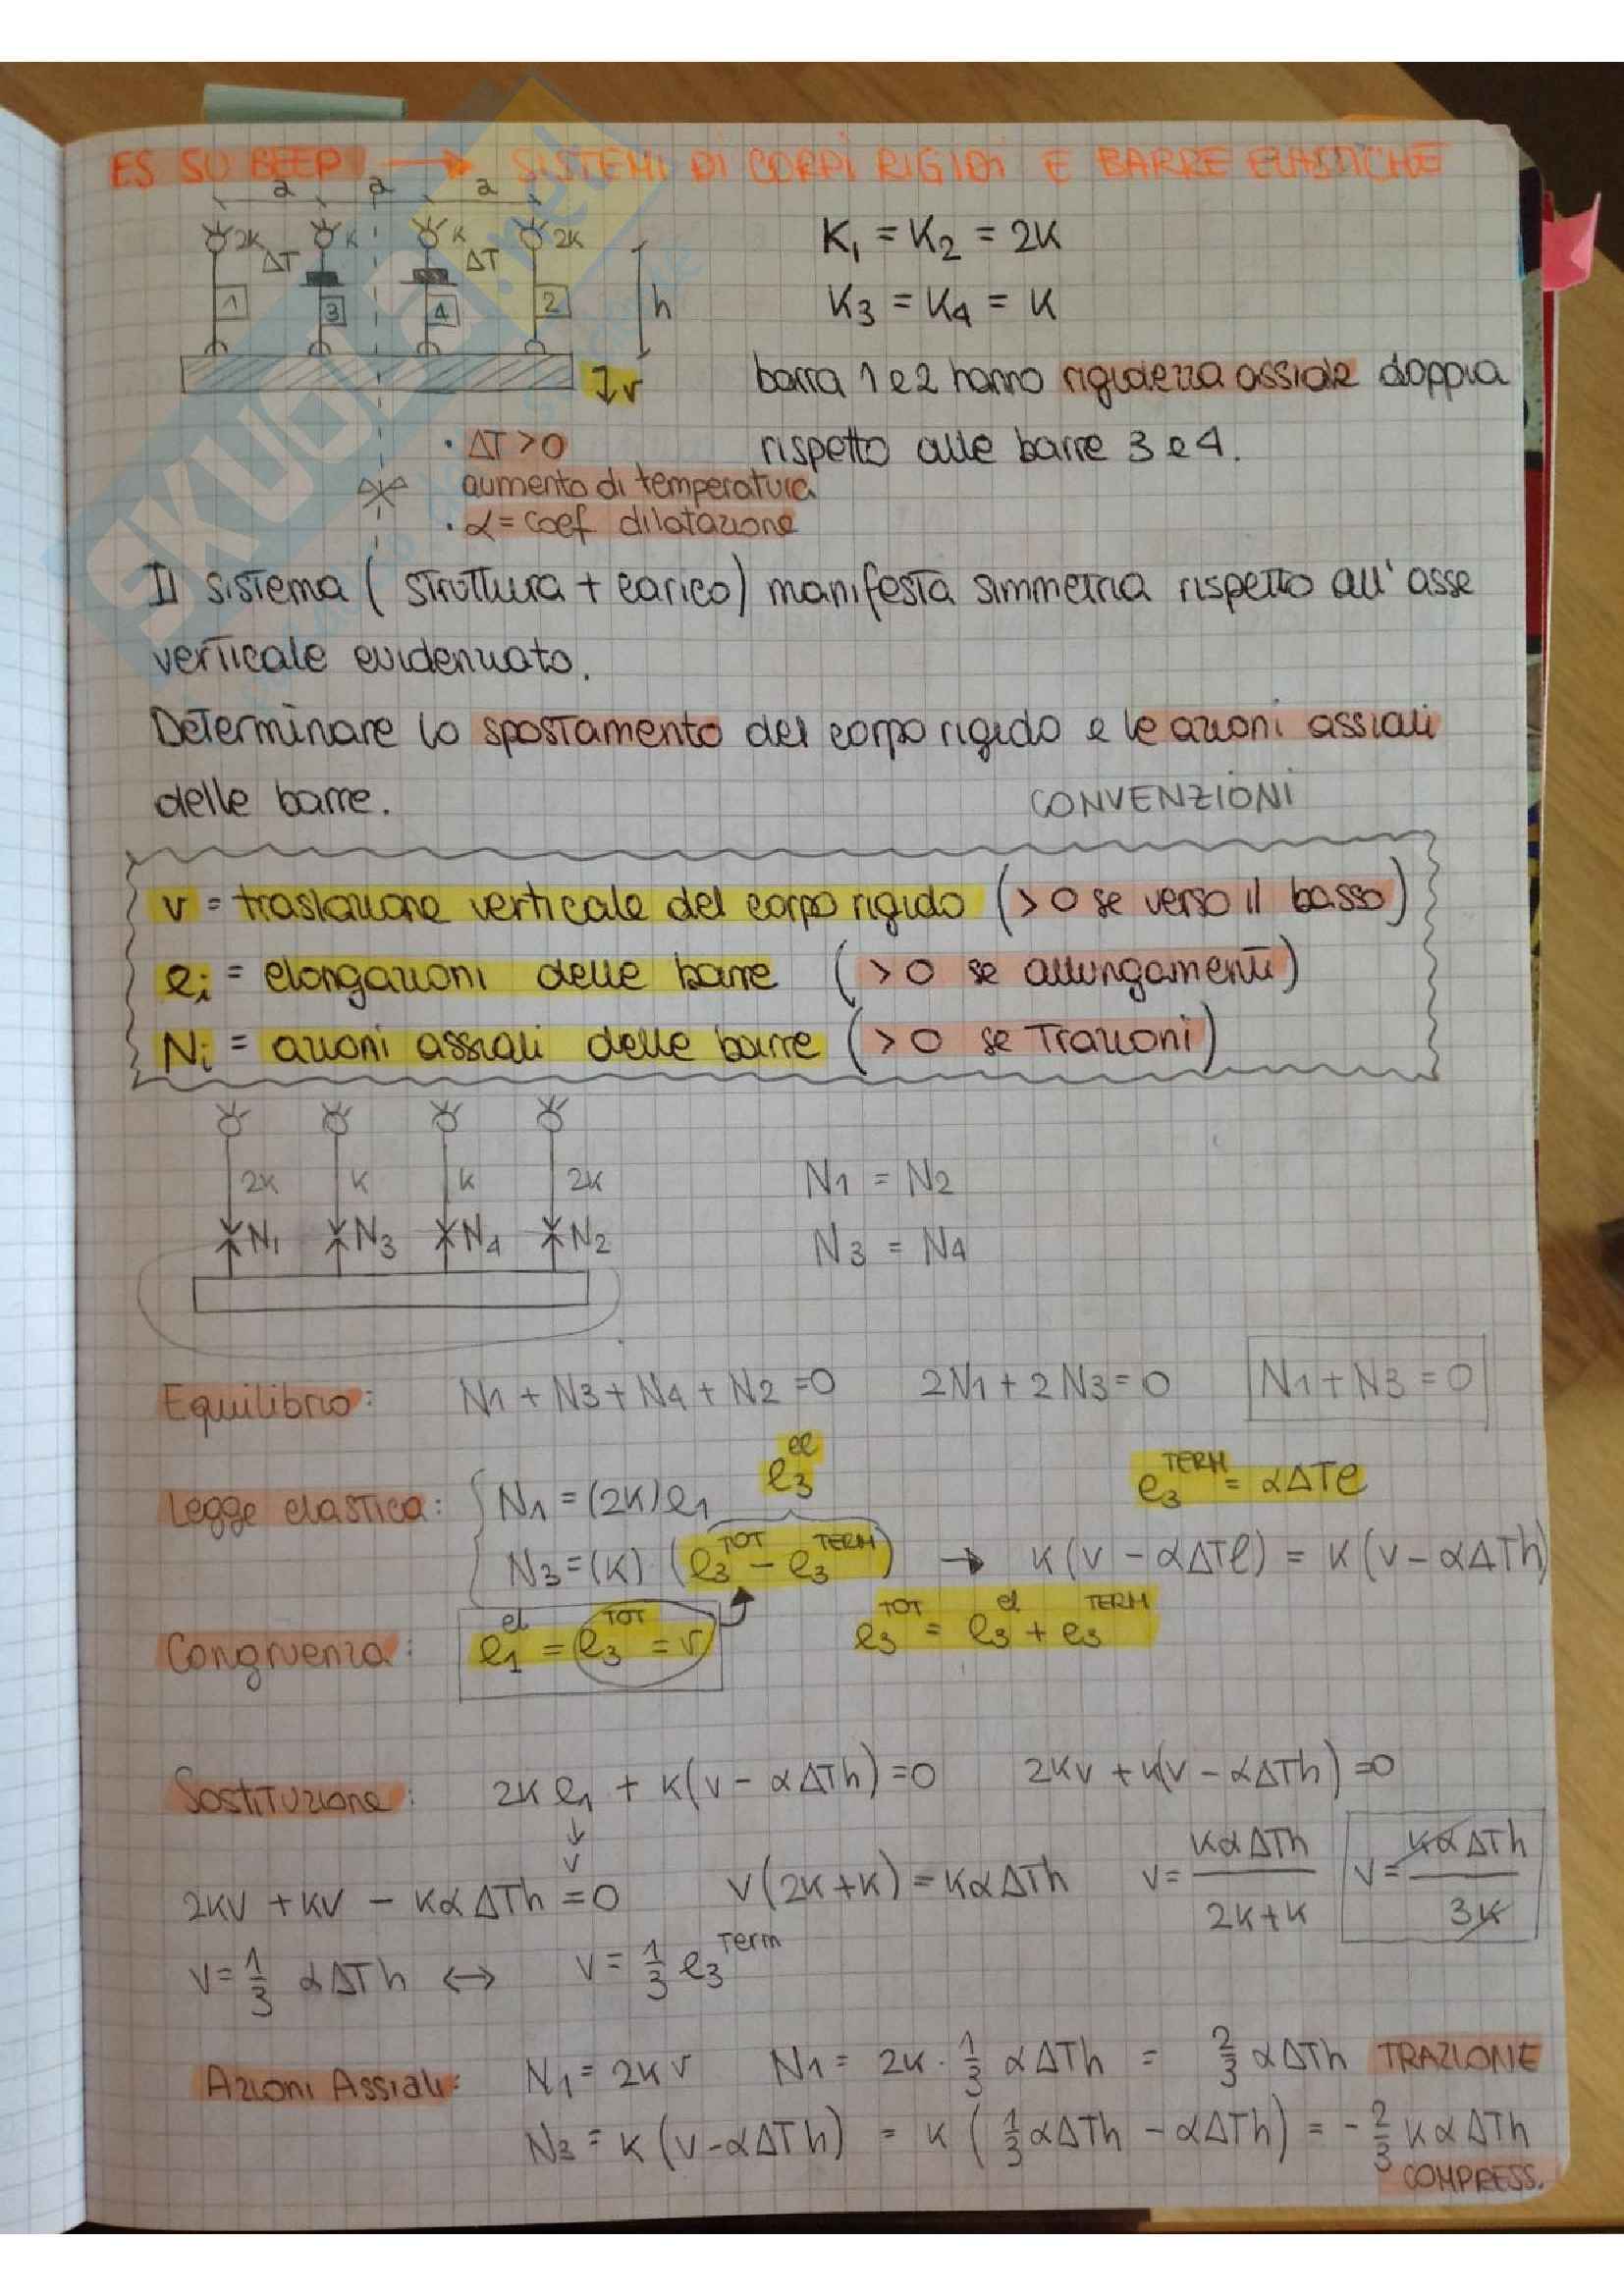 ES SU BEEP → SISTEMI DI CORPI RIGIDI E BARRE ELASTICHE
a a a
2K K K 2K
ΔT ΔT
1 3 4 2 h
v
K₁ = K₂ = 2K
K₃ = K₄ = K
barra 1 e 2 hanno rigidezza assiale doppia
rispetto alle barre 3 e 4.
• ΔT > 0
aumento di temperatura
• α = coef dilatazione
Il sistema (struttura + carico) manifesta simmetria rispetto all'asse
verticale evidenziato.
Determinare lo spostamento del corpo rigido e le azioni assiali
delle barre.
CONVENZIONI
v = traslazione verticale del corpo rigido (>0 se verso il basso)
eᵢ = elongazioni delle barre (>0 se allungamenti)
Nᵢ = azioni assiali delle barre (>0 se Trazioni)
2K K K 2K
N₁ N₃ N₄ N₂
N₁ = N₂
N₃ = N₄
Equilibrio: N₁ + N₃ + N₄ + N₂ = 0 2N₁ + 2N₃ = 0 N₁ + N₃ = 0
e₃^el e₃^TERM = αΔTl
Legge elastica: N₁ = (2K) e₁
N₃ = (K) (e₃^TOT − e₃^TERM) → K(v − αΔTl) = K(v − αΔTh)
Congruenza: e₁^el = e₃^TOT = v e₃^TOT = e₃^el + e₃^TERM
Sostituzione: 2K e₁ + K(v − αΔTh) = 0 2Kv + K(v − αΔTh) = 0
↓
v
2Kv + Kv − KαΔTh = 0 v(2K+K) = KαΔTh v = KαΔTh / 2K+K v = KαΔTh / 3K
v = 1/3 αΔTh ↔ v = 1/3 e₃^Term
Azioni Assiali: N₁ = 2Kv N₁ = 2K · 1/3 αΔTh = 2/3 αΔTh TRAZIONE
N₃ = K(v − αΔTh) = K(1/3 αΔTh − αΔTh) = −2/3 KαΔTh
COMPRESS.
SKUOLA.net